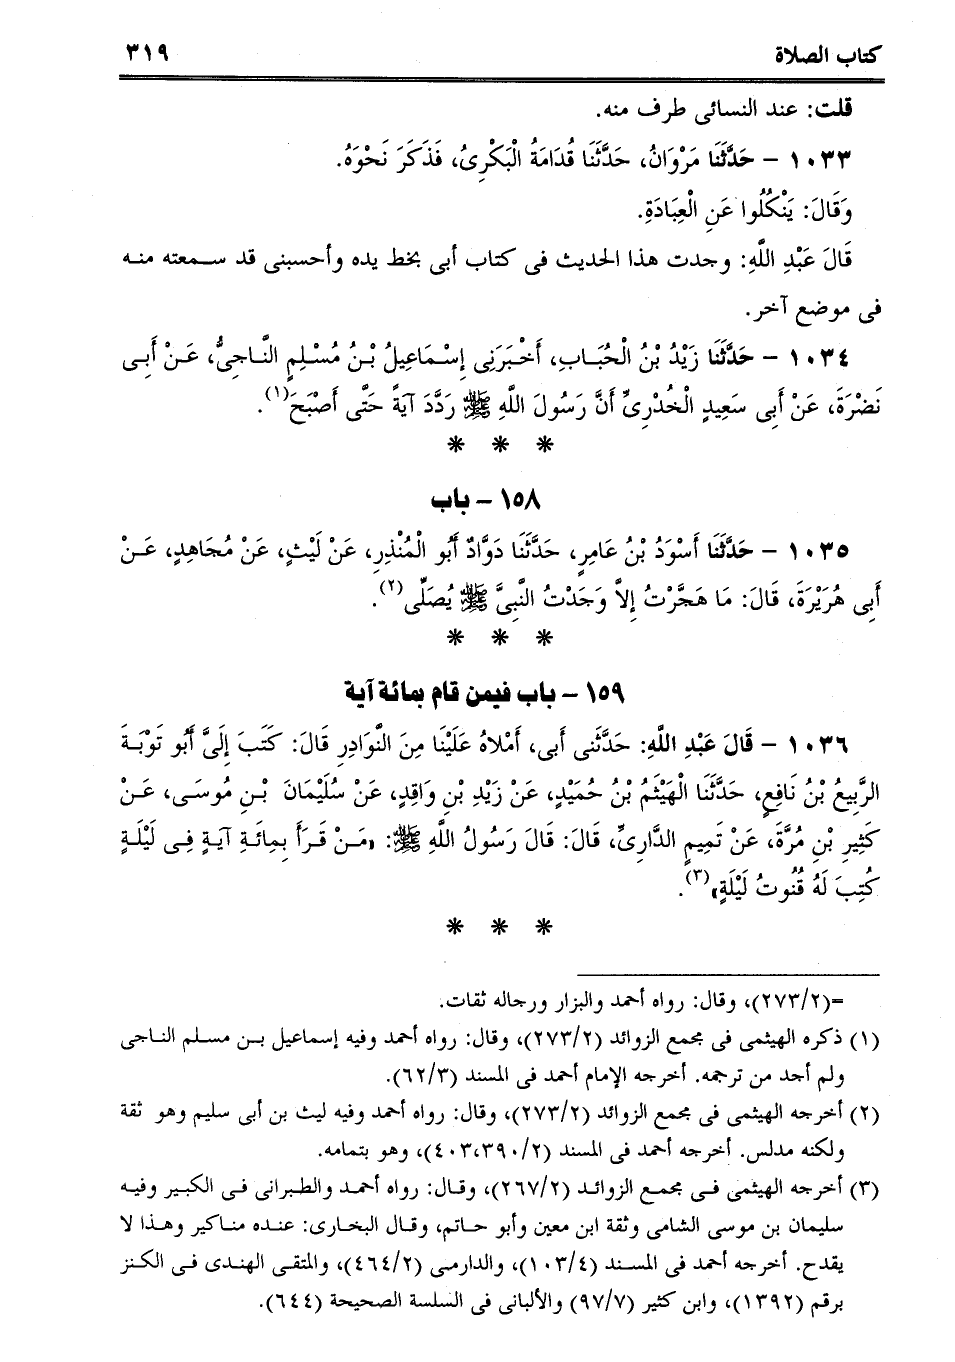 كتاب الصلاة ٣١٩
قلت: عند النسائى طرف منه.
١٠٣٣ – حَدَّثَنَا مَرْوَانُ، حَدَّثَنَا قُدَامَةُ الْبَكْرِىُّ، فَذَكَرَ نَحْوَهُ.
وَقَالَ: يَنْكُلُوا عَنِ الْعِبَادَةِ.
قَالَ عَبْدِ اللَّهِ: وجدت هذا الحديث فى كتاب أبى بخط يده وأحسبنى قد سمعته منه
فى موضع آخر.
١٠٣٤ – حَدَّثَنَا زَيْدُ بْنُ الْحُبَابِ، أَخْبَرَنِى إِسْمَاعِيلُ بْنُ مُسْلِمٍ النَّاجِىُّ، عَنْ أَبِى
نَضْرَةَ، عَنْ أَبِى سَعِيدٍ الْخُدْرِىِّ أَنَّ رَسُولَ اللَّهِ ﷺ رَدَّدَ آيَةً حَتَّى أَصْبَحَ(١).
* * *
١٥٨ – باب
١٠٣٥ – حَدَّثَنَا أَسْوَدُ بْنُ عَامِرٍ، حَدَّثَنَا دَوَّادٌ أَبُو الْمُنْذِرِ، عَنْ لَيْثٍ، عَنْ مُجَاهِدٍ، عَنْ
أَبِى هُرَيْرَةَ، قَالَ: مَا هَجَّرْتُ إِلاَّ وَجَدْتُ النَّبِىَّ ﷺ يُصَلِّى(٢).
* * *
١٥٩ – باب فيمن قام بمائة آية
١٠٣٦ – قَالَ عَبْدِ اللَّهِ: حَدَّثَنِى أَبِى، أَمْلاَهُ عَلَيْنَا مِنَ النَّوَادِرِ قَالَ: كَتَبَ إِلَىَّ أَبُو تَوْبَةَ
الرَّبِيعُ بْنُ نَافِعٍ، حَدَّثَنَا الْهَيْثَمُ بْنُ حُمَيْدٍ، عَنْ زَيْدِ بْنِ وَاقِدٍ، عَنْ سُلَيْمَانَ بْنِ مُوسَى، عَنْ
كَثِيرِ بْنِ مُرَّةَ، عَنْ تَمِيمٍ الدَّارِىِّ، قَالَ: قَالَ رَسُولُ اللَّهِ ﷺ: «مَنْ قَرَأَ بِمِائَةِ آيَةٍ فِى لَيْلَةٍ
كُتِبَ لَهُ قُنُوتُ لَيْلَةٍ»(٣).
* * *
=(٢٧٣/٢)، وقال: رواه أحمد والبزار ورجاله ثقات.
(١) ذكره الهيثمى فى مجمع الزوائد (٢٧٣/٢)، وقال: رواه أحمد وفيه إسماعيل بن مسلم الناجى
ولم أجد من ترجمه. أخرجه الإمام أحمد فى المسند (٦٢/٣).
(٢) أخرجه الهيثمى فى مجمع الزوائد (٢٧٣/٢)، وقال: رواه أحمد وفيه ليث بن أبى سليم وهو ثقة
ولكنه مدلس. أخرجه أحمد فى المسند (٤٠٣،٣٩٠/٢)، وهو بتمامه.
(٣) أخرجه الهيثمى فى مجمع الزوائد (٢٦٧/٢)، وقال: رواه أحمد والطبرانى فى الكبير وفيه
سليمان بن موسى الشامى وثقة ابن معين وأبو حاتم، وقال البخارى: عنده مناكير وهذا لا
يقدح. أخرجه أحمد فى المسند (١٠٣/٤)، والدارمى (٤٦٤/٢)، والمتقى الهندى فى الكنز
برقم (١٣٩٢)، وابن كثير (٩٧/٧) والألبانى فى السلسة الصحيحة (٦٤٤).